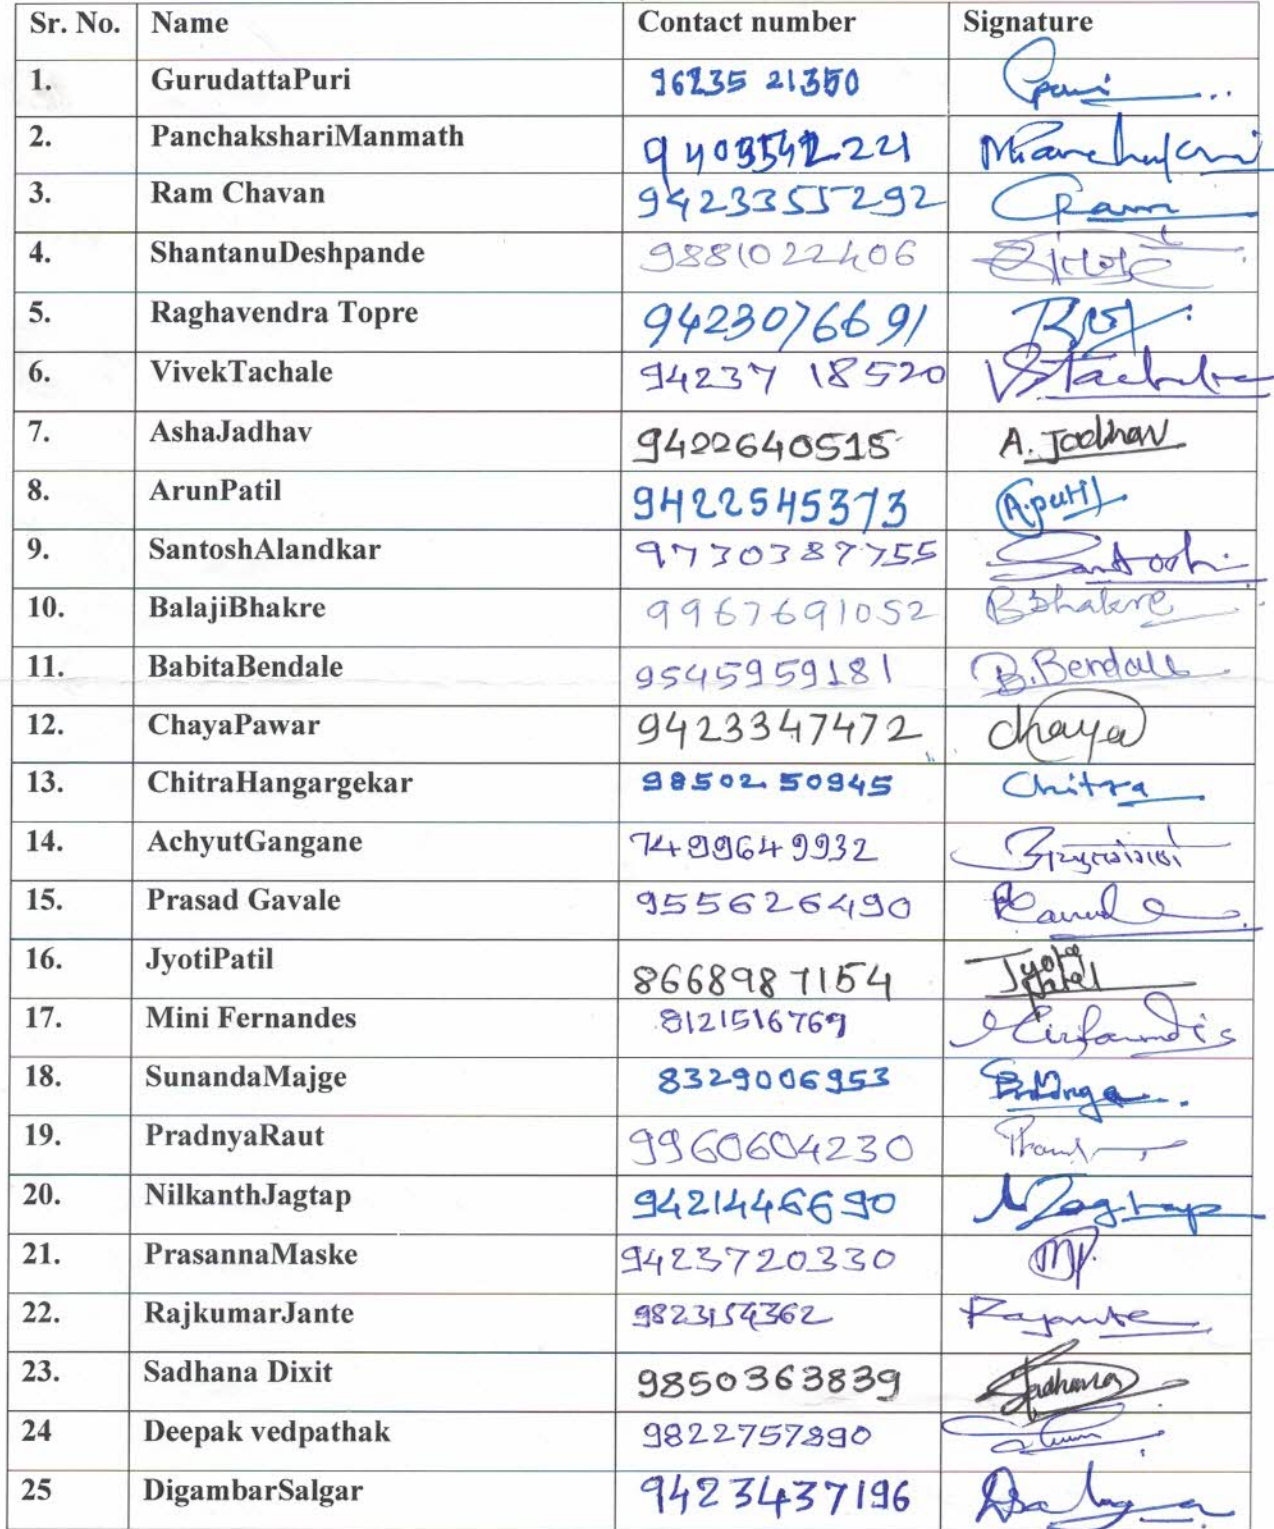 Sr. No. Name Contact number Signature
1. GurudattaPuri 96235 21350
2. PanchakshariManmath
3. Ram Chavan 9423355292 Ram
4. ShantanuDeshpande 9881022406
5. Raghavendra Topre 9423076691
6. VivekTachale 94237 18520 V.Tachale
7. AshaJadhav 9422640515 A. Jadhav
8. ArunPatil 9422545373 A.patil
9. SantoshAlandkar 9730387755 Santosh
10. BalajiBhakre 9967691052 BBhakre
11. BabitaBendale 9545959181 B.Bendale
12. ChayaPawar 9423347472 chaya
13. ChitraHangargekar 98502 50945 Chitra
14. AchyutGangane 7499649932
15. Prasad Gavale 955626490
16. JyotiPatil 8668987154 Jyoti Patel
17. Mini Fernandes 8121516769
18. SunandaMajge 8329006953
19. PradnyaRaut 9960604230
20. NilkanthJagtap 9421446690 NJagtap
21. PrasannaMaske 9423720330 MP.
22. RajkumarJante 9823154362
23. Sadhana Dixit 9850363839 Sadhana
24 Deepak vedpathak 9822757890
25 DigambarSalgar 9423437196